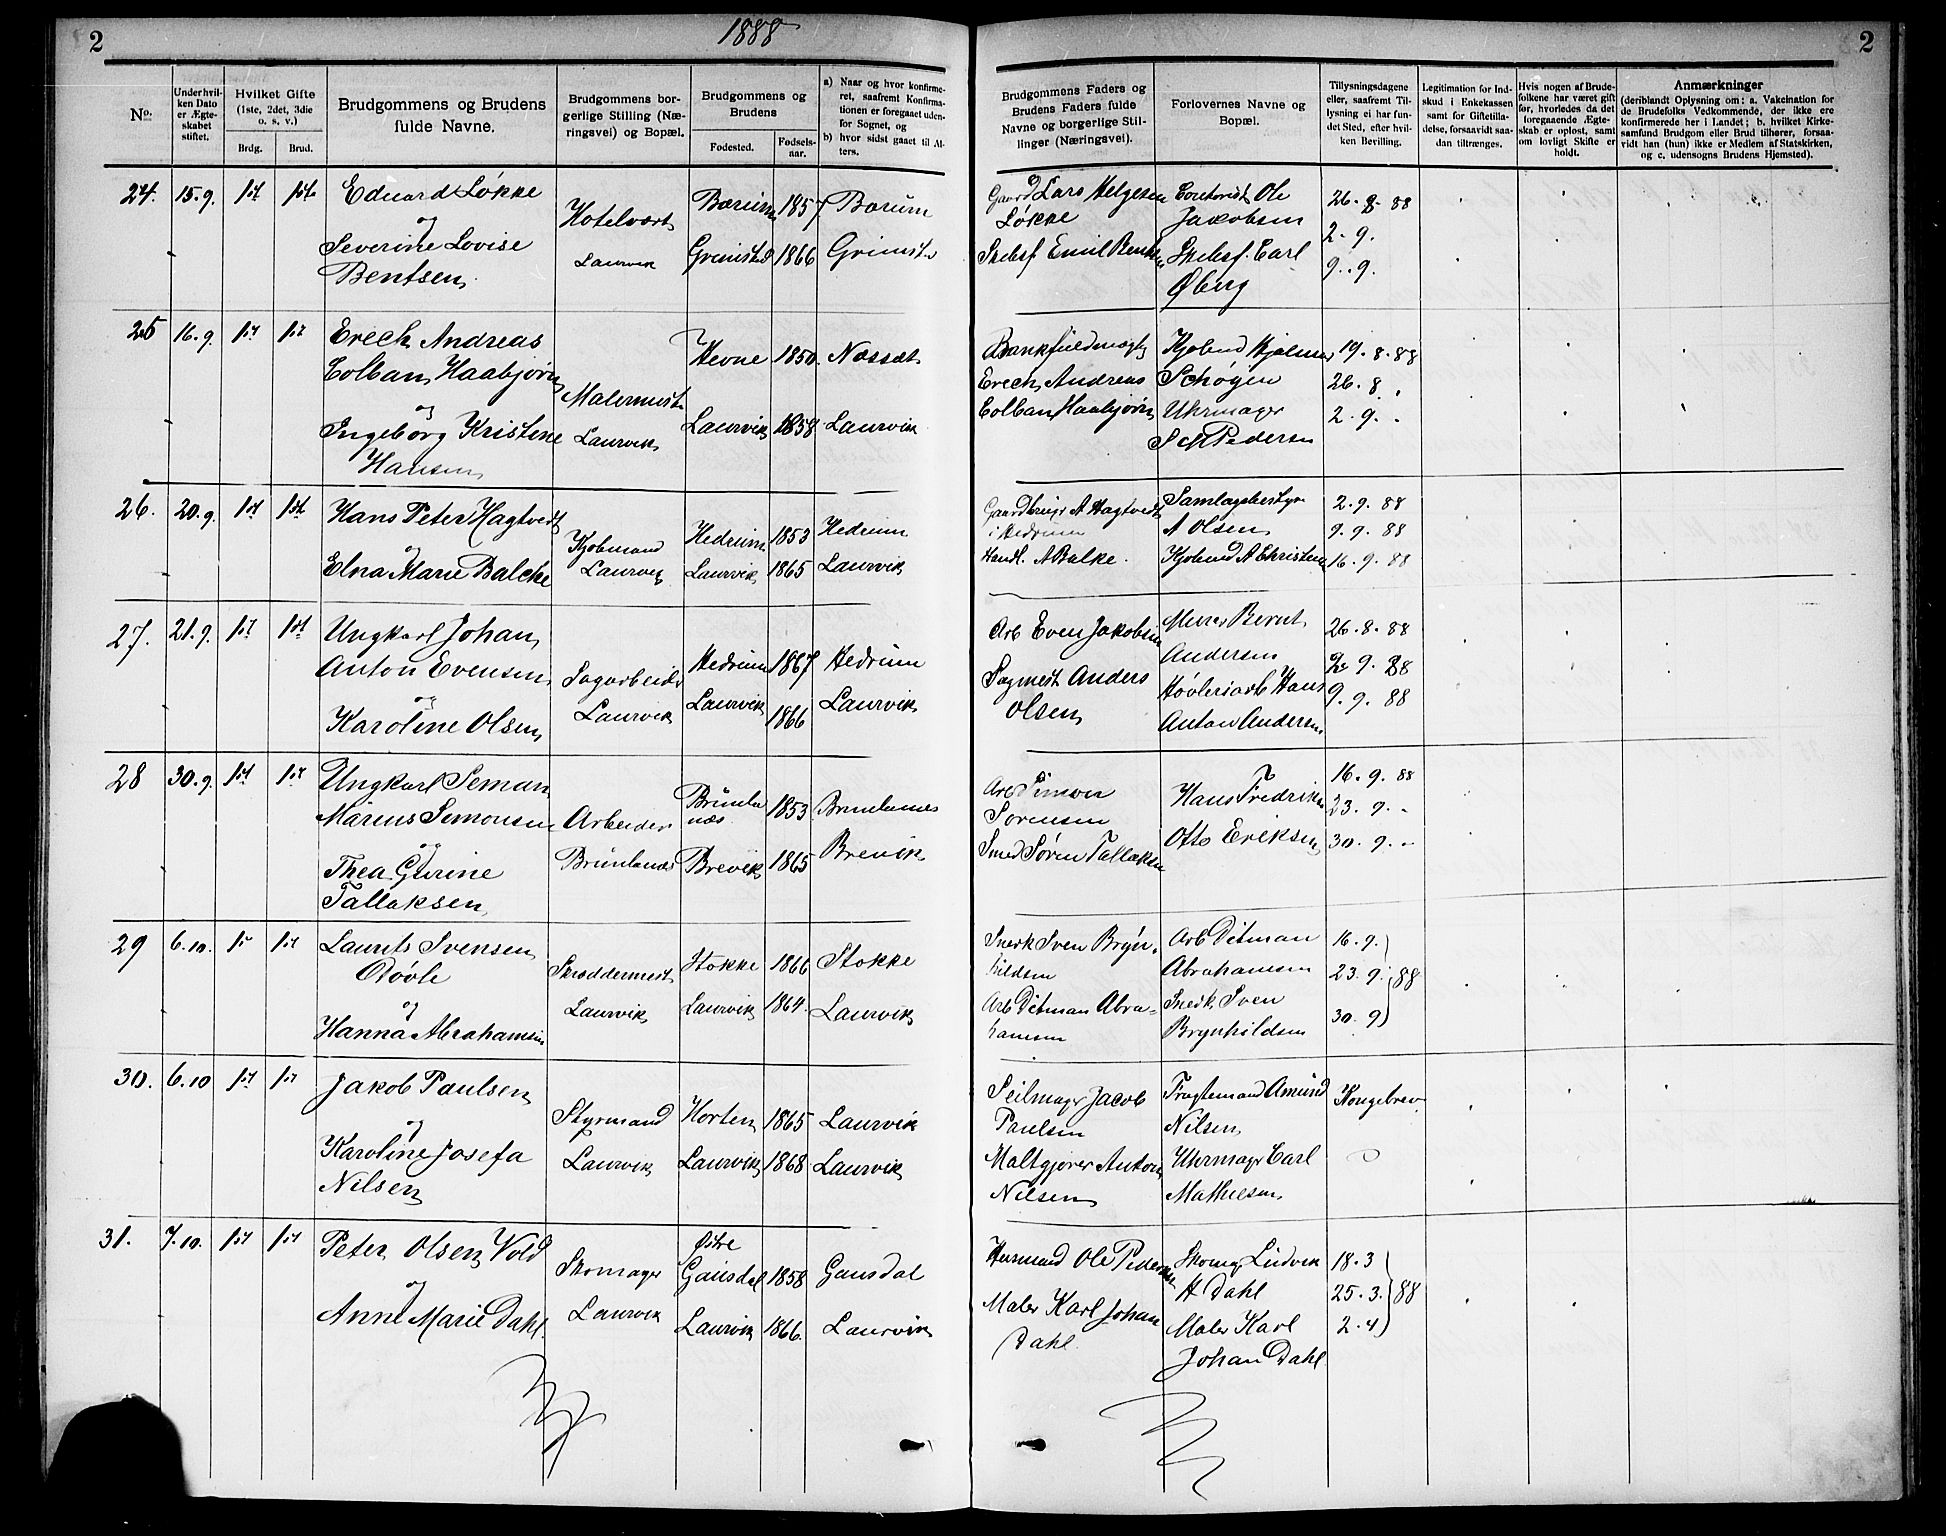 2
1888
2
No.
Under hvilken Dato er Ægteskabet stiftet.
Hvilket Gifte
(1ste, 2det, 3die o. s. v.)
Brdg.
Brud.
Brudgommens og Brudens fulde Navne.
Brudgommens borgerlige Stilling (Næringsvei) og Bopæl.
Brudgommens og Brudens
Fødested.
Fødselsaar.
a) Naar og hvor konfirmeret, saafremt Konfirmationen er foregaaet udenfor Sognet, og
b) hvor sidst gaaet til Alters.
Brudgommens Faders og Brudens Faders fulde Navne og borgerlige Stillinger (Næringsvei).
Forlovernes Navne og Bopæl.
Tillysningsdagene eller, saafremt Tillysning ei har fundet Sted, efter hvilken Bevilling.
Legitimation for Indskud i Enkekassen samt for Giftetilladelse, forsaavidt saadan tiltrænges.
Hvis nogen af Brudefolkene har været gift før, hvorledes da det foregaaende Ægteskab er opløst, samt om lovligt Skifte er holdt.
Anmærkninger
(deriblandt Oplysning om: a. Vakcination for de Brudefolks Vedkommende, der ikke ere konfirmerede her i Landet; b. hvilket Kirkesamfund Brudgom eller Brud tilhører, forsaavidt han (hun) ikke er Medlem af Statskirken, og c. udensogns Brudens Hjemsted).
24. 15.9. 1st 1st Eduard Løkke
og
Severine Lovise
Bentsen
Hotelvært
Laurvik
Bærum 1857 Bærum
Grimstad 1866 Grimstad
Gaard Lars Helgesen
Løkke
Skibsf Emil Bentsen
Ole
Jakobsen
Skibsf. Carl
Øberg
26.8.88
2.9.
9.9.
25 16.9. 1st 1st Erech Andreas
Colban Haabjørn
og
Ingeborg Kristine
Hansen
Malermest
Laurvik
Hevne 1850 Næsset
Laurvik 1858 Laurvik
Bankfuldmægtig
Erech Andreas
Colban Haabjørn
Kjøbmd Hjalmar
Schøyen
Uhrmager
Pedersen
19.8.88
26.8.
2.9.
26. 20.9. 1st 1st Hans Peter Hagtvedt
og
Elna Marie Balcke
Kjøbmand
Laurvig
Hedrum 1853 Hedrum
Laurvik 1865 Laurvik
Gaardbruger A Hagtvedt
i Hedrum
Handl. A Balke.
Samlagsbestyr
A Olsen
Kjøbmd A Christensen
2.9.88
9.9.88
16.9.88
27. 21.9. 1st 1st Ungkarl Johan
Anton Evensen
og
Karoline Olsen
Sagarbeider
Laurvik
Hedrum 1867 Hedrum
Laurvik 1866 Laurvik
Arb Even Jakobsen
Sagmest Anders
Olsen
Murer Bernt
Andersen
Høvleriarb Hans
Anton Andersen
26.8.88
2.9.88
9.9.88
28 30.9. 1st 1st Ungkarl Seman
Marius Simonsen
og
Thea Gurine
Tallaksen
Arbeider
Brunlanæs
Brunlanæs 1853 Brunlanæs
Brevik 1865 Brevik
Arb Simon
Sørensen
Smed Søren Tallaksen
Hans Fredriksen
Otto Eriksen
16.9.88
23.9.
30.9.
29 6.10. 1st 1st Laurits Svensen
Røvle
og
Hanna Abrahamsen
Skræddermest
Laurvik
Stokke 1866 Stokke
Laurvik 1864 Laurvik
Snedk Sven Bryn-
hildsen
Arb Ditman Abra-
hamsen
Arb Ditman
Abrahamsen
Snedk. Sven
Brynhildsen
16.9.
23.9. 88
30.9
30. 6.10 1st 1st Jakob Paulsen
og
Karoline Josefa
Nilsen
Styrmand
Laurvik
Horten 1865 Laurvik
Laurvik 1868 Laurvik
Seilmager Jacob
Paulsen
Maltgjører Anton
Nilsen
Fragtemand Amund
Nilsen
Uhrmager Carl
Mathiesen
Kongebrev
31. 7.10. 1st 1st Peter Olsen Vold
og
Anne Marie Dahl
Skomager
Laurvik
Østre
Gausdal 1858 Gausdal
Laurvik 1866. Laurvik
Husmand Ole Pedersen
Maler Karl Johan
Dahl
Skomag Ludvik
H Dahl
Maler Karl
Johan Dahl
18.3
25.3. 88
2.4